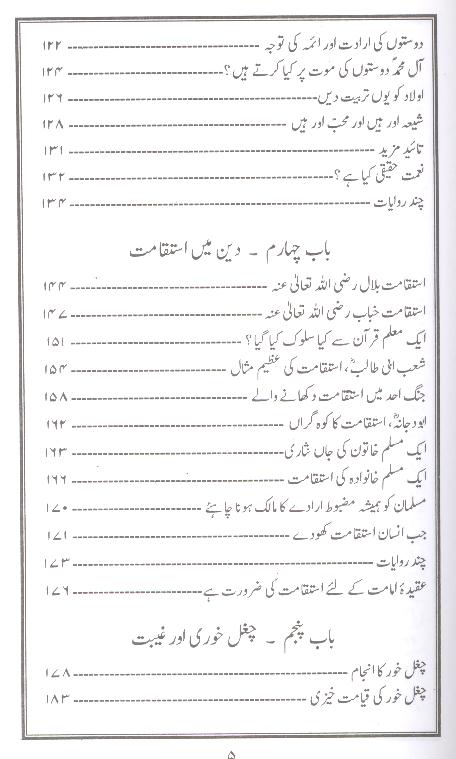 دوستوں کی ارادت اور ائمہ کی توجہ ---------- ۱۲۲
آل محمدؐ دوستوں کی موت پر کیا کرتے ہیں؟ ---------- ۱۲۴
اولاد کو یوں تربیت دیں ---------- ۱۲۶
شیعہ اور ہیں اور محب اور ہیں ---------- ۱۲۸
تائید مزید ---------- ۱۳۱
نعمت حقیقی کیا ہے؟ ---------- ۱۳۲
چند روایات ---------- ۱۳۴
باب چہارم ۔ دین میں استقامت
استقامت بلال رضی اللہ تعالیٰ عنہ ---------- ۱۴۴
استقامت خباب رضی اللہ تعالیٰ عنہ ---------- ۱۴۷
ایک معلم قرآن سے کیا سلوک کیا گیا؟ ---------- ۱۵۱
شعب ابی طالبؓ، استقامت کی عظیم مثال ---------- ۱۵۴
جنگ احد میں استقامت دکھانے والے ---------- ۱۵۸
ابودجانہؓ، استقامت کا کوہ گراں ---------- ۱۶۲
ایک مسلم خاتون کی جاں نثاری ---------- ۱۶۳
ایک مسلم خانوادہ کی استقامت ---------- ۱۶۶
مسلمان کو ہمیشہ مضبوط ارادے کا مالک ہونا چاہئے ---------- ۱۷۰
جب انسان استقامت کھودے ---------- ۱۷۱
چند روایات ---------- ۱۷۳
عقیدۂ امامت کے لئے استقامت کی ضرورت ہے ---------- ۱۷۶
باب پنجم ۔ چغل خوری اور غیبت
چغل خور کا انجام ---------- ۱۷۸
چغل خور کی قیامت خیزی ---------- ۱۸۳
۵